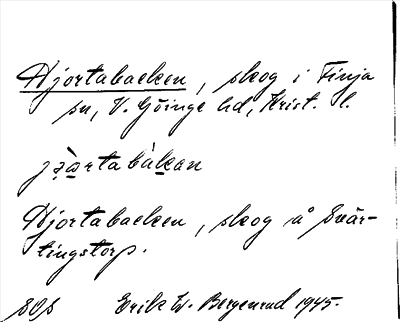 Hjortabacken, skog i Finja
sn, V. Göinge hd, Krist. l.
Hjortabacken, skog å Svär-
tingstorp.
Erik W. Bergenrud 1945.